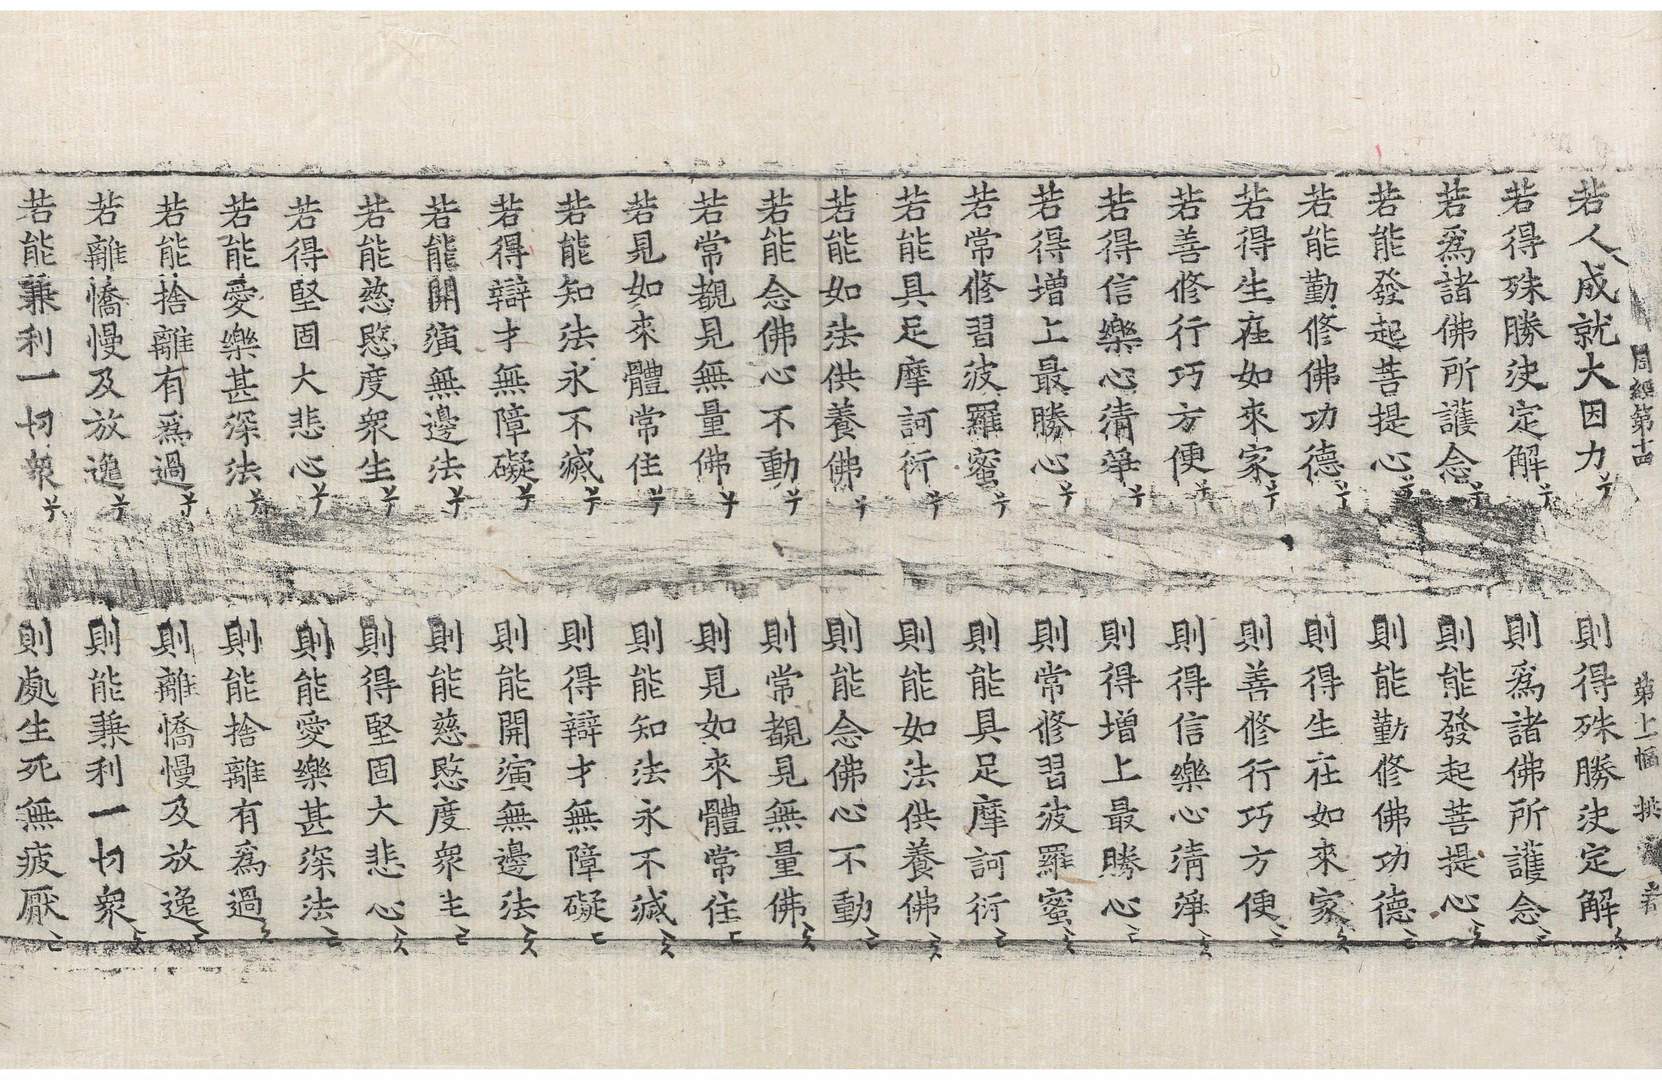 周經第十四
若人成就大因力 則得殊勝決定解
若得殊勝決定解 則爲諸佛所護念
若爲諸佛所護念 則能發起菩提心
若能發起菩提心 則能勤修佛功德
若能勤修佛功德 則得生在如來家
若得生在如來家 則善修行巧方便
若善修行巧方便 則得信樂心清淨
若得信樂心清淨 則得增上最勝心
若得增上最勝心 則常修習波羅蜜
若常修習波羅蜜 則能具足摩訶衍
若能具足摩訶衍 則能如法供養佛
若能如法供養佛 則能念佛心不動
若能念佛心不動 則常覩見無量佛
若常覩見無量佛 則見如來體常住
若見如來體常住 則能知法永不滅
若能知法永不滅 則得辯才無障礙
若得辯才無障礙 則能開演無邊法
若能開演無邊法 則能慈愍度衆生
若能慈愍度衆生 則得堅固大悲心
若得堅固大悲心 則能愛樂甚深法
若能愛樂甚深法 則能捨離有爲過
若能捨離有爲過 則離憍慢及放逸
若離憍慢及放逸 則能兼利一切衆
若能兼利一切衆 則處生死無疲厭